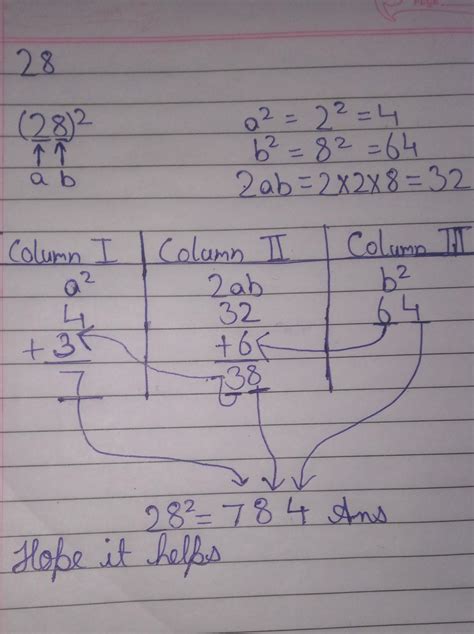 28
(28)² a² = 2² = 4
b² = 8² = 64
a b 2ab = 2×2×8 = 32
Column I Column II Column III
a² 2ab b²
4 32 64
+3 +6
7 38
28² = 784 Ans
Hope it helps